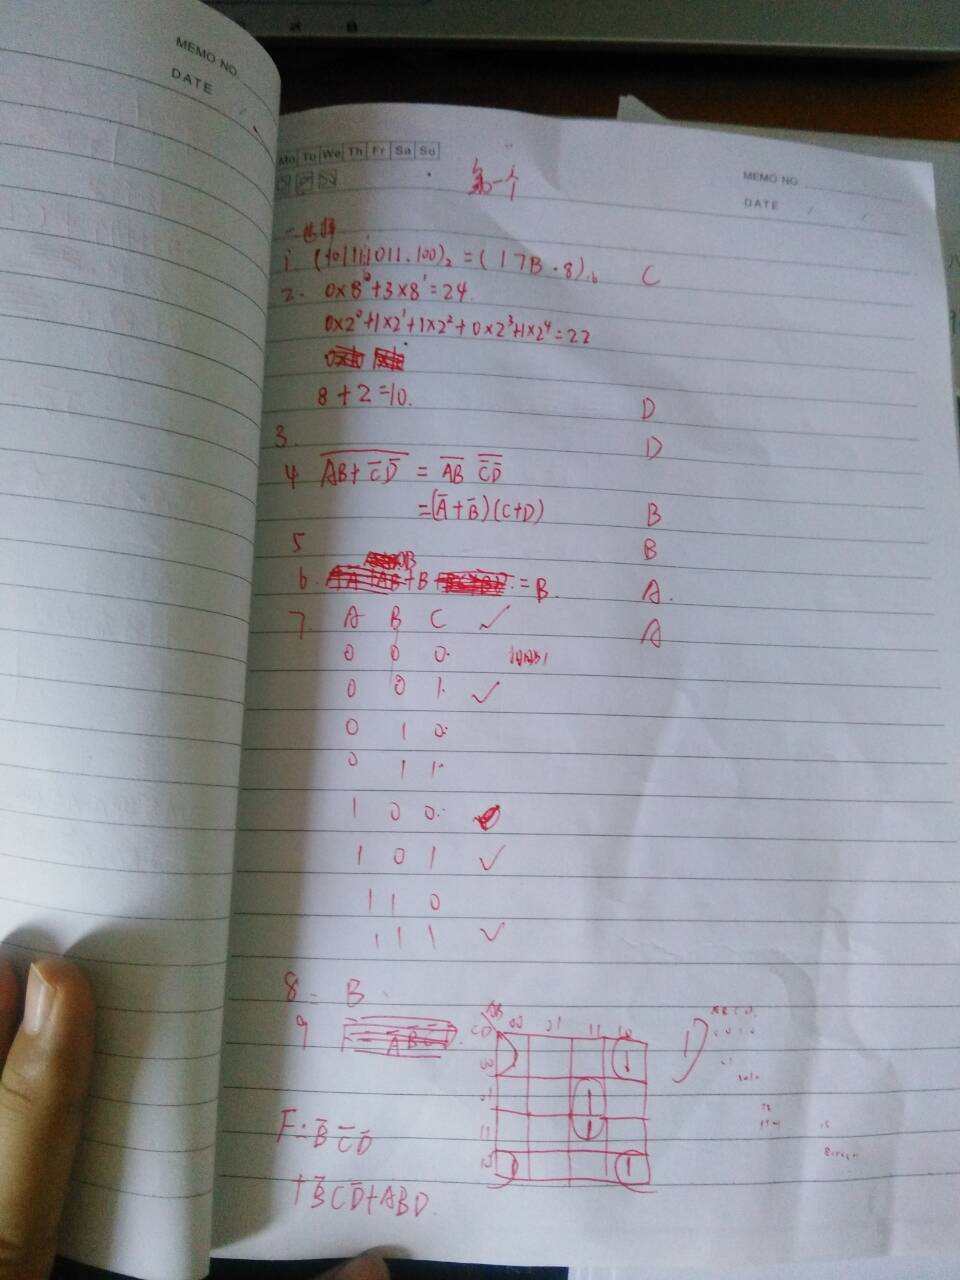 MEMO NO.
DATE / /
Mo Tu We Th Fr Sa Su
MEMO NO.
DATE / /
第一个
一. 选择
1. (101111011.100)₂ = (17B.8)₁₆ C
2. 0×8⁰+3×8¹=24.
0×2⁰+1×2¹+1×2²+0×2³+1×2⁴=22
8+2=10. D
3. D
4 \overline{AB+\overline{C}\overline{D}} = \overline{AB} \overline{\overline{C}\overline{D}}
=(\overline{A}+\overline{B})(C+D) B
5 B
6. +B+ =B. A.
7. A B C ✓ A
0 0 0.
0 0 1. ✓
0 1 0.
0 1 1.
1 0 0.
1 0 1 ✓
1 1 0
1 1 1 ✓
8. B
9 AB
CD 00 01 11 10 D
00 1
01 1
11 1
10 1
F=\overline{B}\overline{C}\overline{D}
+\overline{B}C\overline{D}+ABD.